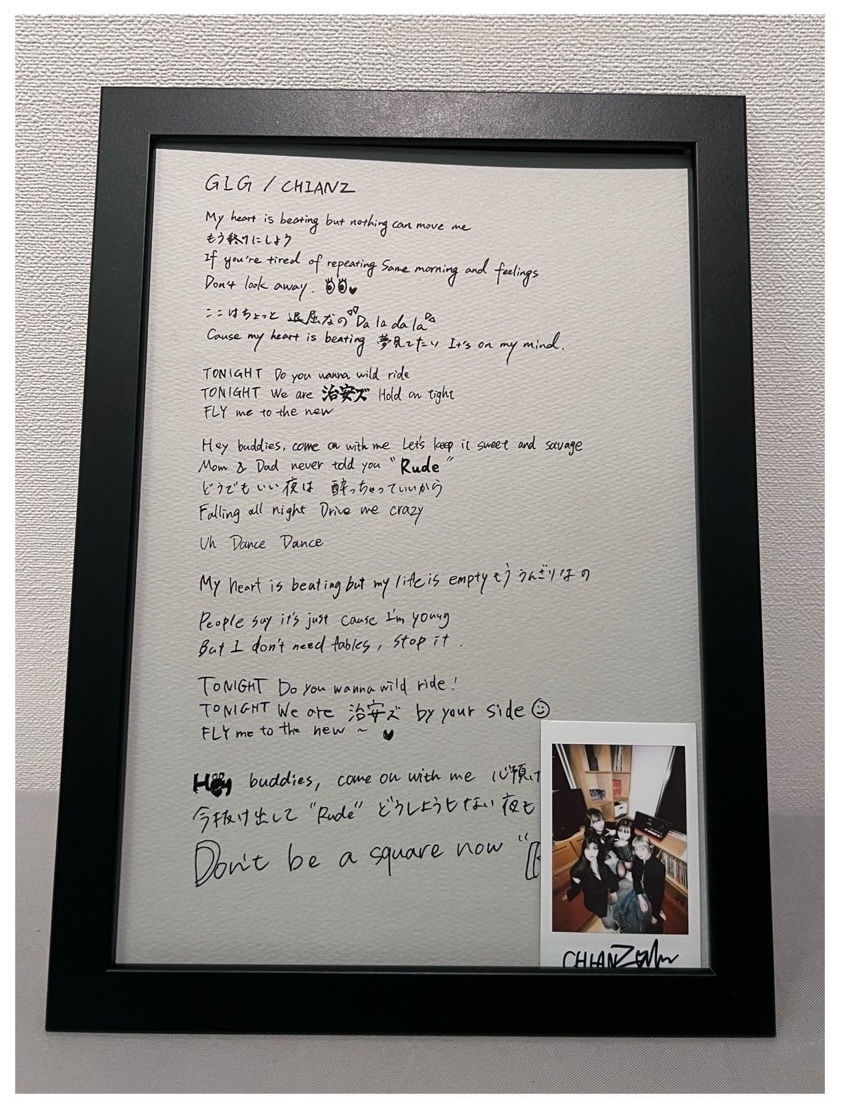 GIG / CHIANZ
My heart is beating but nothing can move me
もう終りにしよう
If you're tired of repeating Same morning and feelings
Don't look away.
ここはちょっと 退屈なの "Da la da la"
Cause my heart is beating 夢見てたい It's on my mind.
TONIGHT Do you wanna wild ride
TONIGHT We are 治安ズ Hold on tight
FLY me to the new
Hey buddies, come on with me Let's keep it sweet and savage
Mom & Dad never told you "Rude"
どうでもいい夜は 酔っちゃっていいから
Falling all night Drive me crazy
Uh Dance Dance
My heart is beating but my life is empty もう うんざりなの
People say it's just cause I'm young
But I don't need fables, stop it.
TONIGHT Do you wanna wild ride!
TONIGHT We are 治安ズ by your side
FLY me to the new ~
Hey buddies, come on with me 心預け
今抜け出して "Rude" どうしようもない夜も
Don't be a square now "
CHIANZ